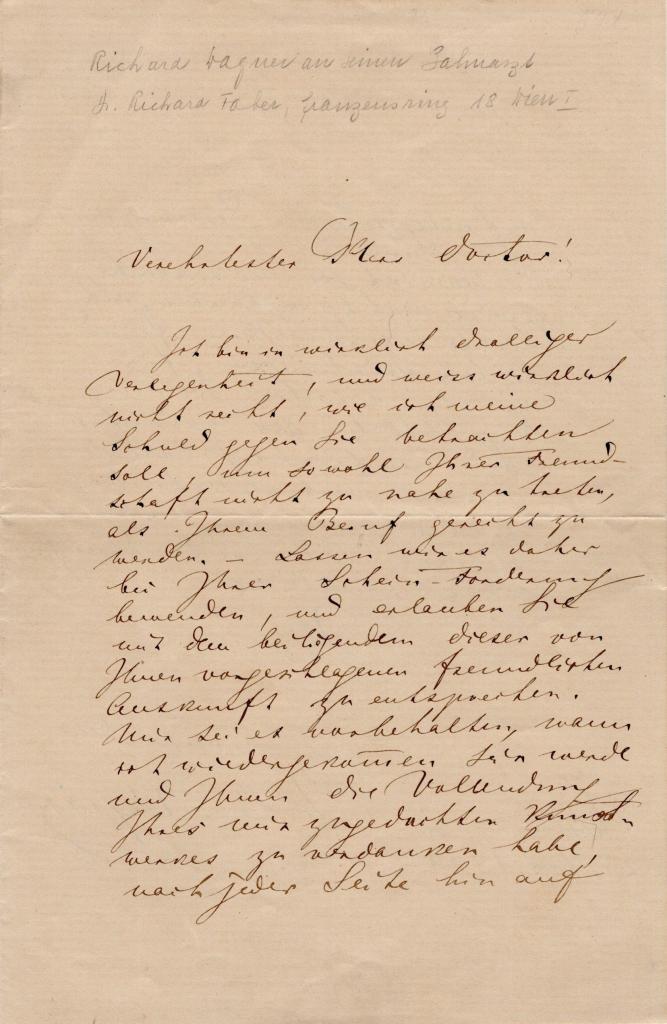 Richard Wagner an seinen Zahnarzt
Dr. Richard Faber, Franzensring 18 Wien I
Verehrtester Herr Doctor!
Ich bin in wirklich drolliger
Verlegenheit, und weiss wirklich
nicht recht, wie ich meine
Schuld gegen Sie betrachten
soll, um sowohl Ihrer Freund-
schaft nicht zu nahe zu treten,
als Ihrem Beruf gerecht zu
werden. – Lassen wir es daher
bei Ihrer Schein-Forderung
bewenden, und erlauben Sie
mit dem beiliegendem dieser von
Ihnen vorgeschlagenen freundlichen
Auskunft zu entsprechen.
Mir sei es vorbehalten, wann
ich wiedergekom̄en sein werde
und Ihnen die Vollendung
Ihres mir zugedachten Kunst-
werkes zu verdanken habe,
nach jeder Seite hin auf